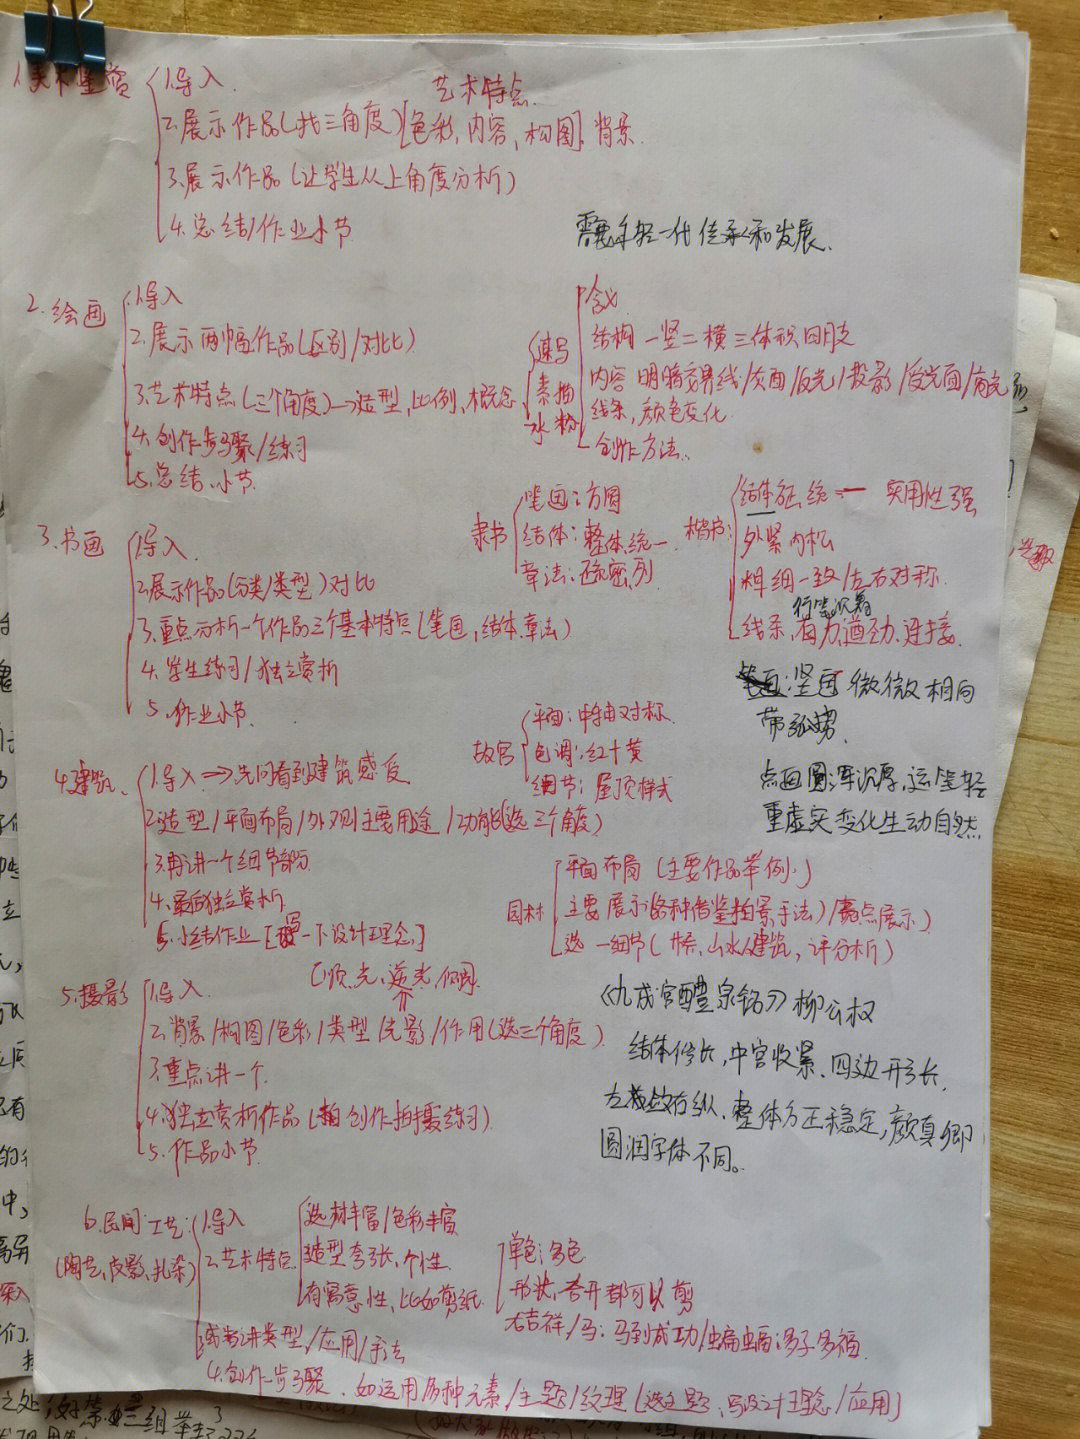 1.美术鉴赏
1.导入
艺术特点
2.展示作品(找三角度)[色彩,内容,构图],背景
3.展示作品(让学生从上角度分析)
4.总结/作业小节
需要年轻一代传承和发展.
2.绘画
1.导入
2.展示两幅作品(区别/对比)
3.艺术特点(三个角度)→造型,比例,概念
4.创作步骤/练习
5.总结.小节
速写
素描
水粉
含义
结构 一竖二横三体积四肢
内容 明暗交界线/灰面/反光/投影/反光面/高光
线条,颜色变化
创作方法.
3.书画
1.导入
2.展示作品(分类/类型)对比
3.重点分析一个作品三个基本特点(笔画,结体.章法)
4.学生练习/独立赏析
5.作业小节
隶书
笔画:方圆
结体:整体统一
章法:疏密列
楷书:
结体 统一 实用性强
外紧内松
粗细一致/左右对称
行笔沉着
线条,有力遒劲.连接.
笔画:竖画微微相向
带弧势.
点画圆浑沉厚,运笔轻
重虚实变化生动自然
4.建筑
1.导入→先问看到建筑感受
2.造型/平面布局/外观/主要用途/功能(选三个角度)
3.再讲一个细节部分
4.最后独立赏析
5.小结作业[写一下设计理念]
故宫
平面:中轴对称
色调:红+黄
细节:屋顶样式
园林
平面布局(主要作品举例)
主要展示(各种借鉴 景手法)/ 点展示)
选一细节( 山水/建筑,评分析)
5.摄影
1.导入
(顺光,逆光,侧)
2.背景/构图/色彩/类型/光影/作用(选三个角度)
3.重点讲一个
4.独立赏析作品(创作拍摄练习)
5.作品小节
《九成宫醴泉铭》柳公权
结体修长,中宫收紧.四边形长.
左敛右纵.整体方正稳定,颜真卿
圆润字体不同。
6.民间工艺:
(陶艺,皮影,扎染)
1.导入
2.艺术特点
选材丰富/色彩丰富
造型夸张,个性
有寓意性,比如剪纸
单色:多色
形状,奇开都可以剪
吉祥/马:马到成功/蝙蝠:多子多福
或者讲类型/应用/手法
4.创作步骤.如运用历种元素/主题/纹理(选主题,写设计理念/应用)